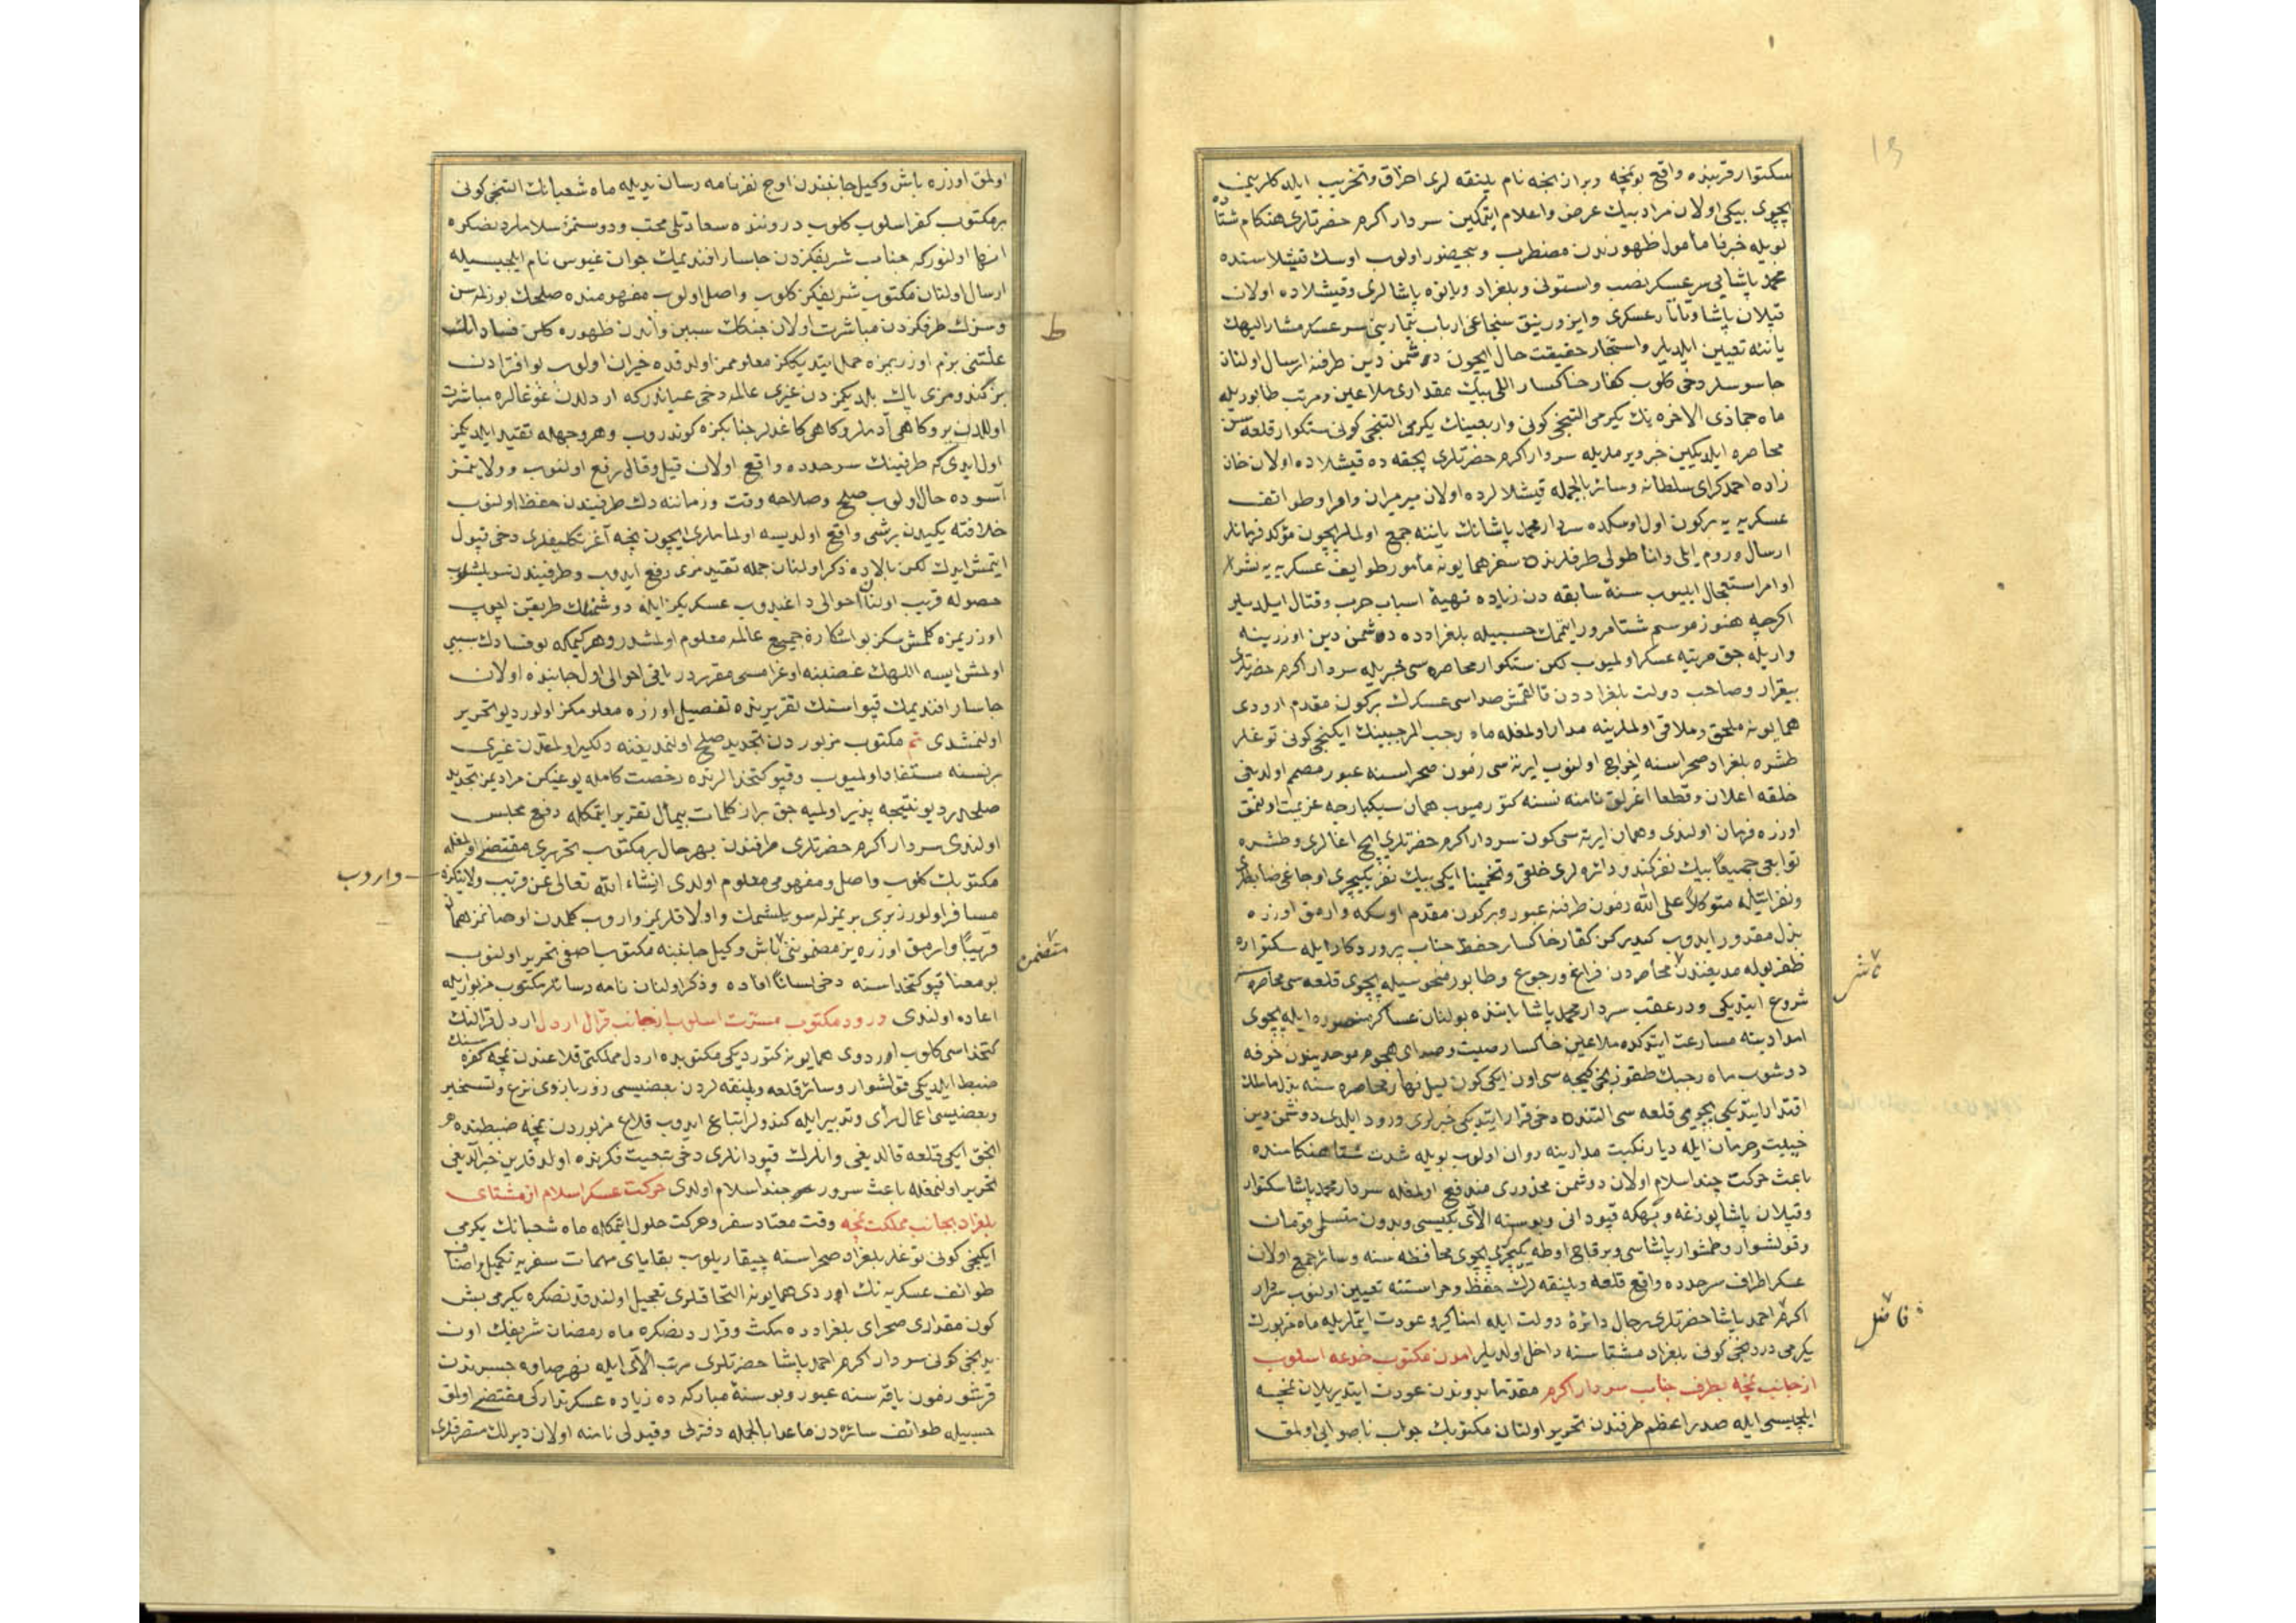 سكتوار قربنده واقع بوبمچه وبران بخه نام پلنقه لری احراق وتخریب ایلدكلرین
پچوی بیكی اولان مراد بیك عرض واعلام ایتمكین سردار اكرم حضرتلری هنكام شتاده
بویله خبر نا مأمول ظهورندن مضطرب وبیحضور اولوب اوسك قیشلاسنده
محمد پاشایی سر عسكر نصب واستونی وبلغراد ویانوه پاشالری وقیشلاده اولان
قپلان پاشا وتاتار عسكری وایزورنیق سنجاغی ارباب تیمارینی سر عسكر مشار الیهك
یاننه تعیین ایلدیلر واستخبار حقیقت حال ایچون دشمن دین طرفنه ارسال اولنان
جاسوسلر دخی كلوب كفار خاكسار اللی بیك مقداری ملاعین ومرتب طابور یله
ماه جماذی الاخره نك یكرمی التنجی كونی واربعینك یكرمی التنجی كونی ستكوار قلعه سن
محاصره ایلدیكین خبر ویرملریله سردار اكرم حضرتلری یجقه ده قیشلاده اولان خان
زاده احمد كرای سلطانه وسائر بالجمله قیشلالرده اولان میرمیران وامرا وطوائف
عسكریه یه بركون اول اوسكده سردار محمد پاشانك یاننه جمع اولملریچون مؤكد فرمانلر
ارسال وروم ایلی واناطولی طرفلرنده سفر همایونه مأمور طوایف عسكریه یه نشر
اوامر استعجال ایلیوب سنۀ سابقه دن زیاده تهیۀ اسباب حرب وقتال ایلدیلر
اكرچه هنوز موسم شتا مرور ایتممك حسبیله بلغرادده دشمن دین اوزرینه
واریله جق مرتبه عسكر اولمیوب لكن ستكوار محاصره سی خبریله سردار اكرم حضرتلری
بیقرار وصاحب دولت بلغراددن قالقمش صداسی عسكرك بركون مقدم اردوی
همایونه ملحق وملاقی اولملرینه مدار اولمغله ماه رجب المرجبینك ایكنجی كونی توغلر
طشره بلغراد صحراسنه اخراج اولنوب ایرته سی زمون صحراسنه عبور مصمم اولدیغی
خلقه اعلان وقطعا اغرلق نامنه نسنه كتورمیوب همان سبكبارجه عزیمت اولنمق
اوزره فرمان اولندی وهمان ایرته سی كون سردار اكرم حضرتلری ایچ اغالری وطشره
توابعی جمیعا بیك نفر كندو دائره لری خلقی وتخمینا ایكی بیك نفر یكیچری اوجاغی ضابطلری
ونفراتیله متوكلا علی الله زمون طرفنه عبور وبركون مقدم اوسكه وارمق اوزره
بذل مقدور ایدوب كیدركن كفار خاكسار حفظ جناب پروردكار ایله سكتواره
ظفر بوله مدیغندن محاصره دن فراغ ورجوع وطابور منحوسیله پچوی قلعه سی محاصره سنه
شروع ایتدیكی ودرعقب سردار محمد پاشا یاننده بولنان عساكر منصوره ایله پچوی
امدادینه مسارعت ایتدكده ملاعین خاكسار صیت وصدای هجوم موحدیندن خوفه
دوشوب ماه رجبك طقوزنجی كیجه سی اون ایكی كون لیل ونهار محاصره سنه بذل ماملك
اقتدار ایتدیكی پچوی قلعه سی التنده دخی فرار ایتدیكی خبرلری ورود ایلدی دشمن دین
خیبت وحرمان ایله دیار نكبت مدارینه روان اولوب بویله شدت شتا هنكامنده
باعث حركت جند اسلام اولان دشمن محذوری مندفع اولمغله سردار محمد پاشا سكتوار
وقپلان پاشا پوزغه وپهكه قپودانی وبوسنه الای بكیسی وبدون متسلمی قومان
وقولشوار وطمشوار پاشاسی وبرقاچ اوطه یكیچری پچوی محافظه سنه وسائر جمع اولان
عسكر اطراف سرحدده واقع قلعه وپلنقه لرك حفظ وحراستنه تعیین اولنوب سردار
اكرم احمد پاشا حضرتلری رجال دائرۀ دولت ایله انداكیرو عودت ایتملریله ماه مزبورك
یكرمی دردنجی كونی بلغراد مشتاسنه داخل اولدیلر آمدن مكتوب خدعه اسلوب
از جانب نمچه بطرف جناب سردار اكرم مقدما بدوندن عودت ایتدیریلان نمچه
ایلچیسی ایله صدر اعظم طرفندن تحریر اولنان مكتوبك جواب ناصوابی اولمق
ناشر
فاضل
اولمق اوزره باش وكیل جانبندن اوچ نفر نامه رسان یدیله ماه شعبانك التنجی كونی
بر مكتوب كفر اسلوب كلوب دروننده سعادتلی محب ودوستمز سلاملردنصكره
انها اولنور كه جناب شریفكزدن جاسار افندیمك جوان غیوس نام ایلچیسیله
ارسال اولنان مكتوب شریفكز كلوب واصل اولوب مفهومنده صلحك بوزلمه سن
وسزك طرفكزدن مباشرت اولان جنكك سببین واندن ظهوره كلن فسادانك
علتنی بزم اوزریمزه حمل ایتدیككز معلوممز اولدقده حیران اولوب بو افترادن
بز كندومزی پاك بلدیكمزدن غیری عالمه دخی عیاندر كه اردلدن غوغالره مباشرت
اوللدن برو كاهی آدملر وكاهی كاغدلر جنابكزه كوندروب وهر وجهله تقید ایلدیكمز
اول ایدی كه طرفینك سرحدده واقع اولان قیل وقالی رفع اولنوب وولایتمز
آسوده حال اولوب صلح وصلاحه وقت وزماننه دك طرفیندن حفظ اولنوب
خلافنه یكیدن برشی واقع اولدیسه اولماملری ایچون نیچه آغر تكلیفلری دخی قبول
ایتمش ایدك لكن بالاده ذكر اولنان جمله تقیدمزی رفع ایدوب وطرفیندن سویلشلوب
حصوله قریب اولنان احوالی داغیدوب عسكریكز ایله دوشمنلك طریقین اچوب
اوزریمزه كلمش سكز بو اشكاره جمیع عالمه معلوم اولمشدر وهر كیمكه بو فسادك سببی
اولمش ایسه اللهك غضبنه اوغرامسی مقرردر باقی احوالی اول جانبده اولان
جاسار افندیمك قپو استنك تقریرنده تفصیل اوزره معلومكز اولور دیو تحریر
اولنمشدی تم مكتوب مزبوردن تجدید صلح اولنمدیغنه دلكیر اولمقدن غیری
بر نسنه مستفاد اولمیوب وقپو كتخدالرنده رخصت كامله یوغیكن مرادیمز تجدید
صلحدر دیو نتیجه پذیر اولمیه جق براز كلمات بیمأل تقریر ایتمكله دفع مجلس
اولندی سردار اكرم حضرتلری طرفندن بهرحال بر مكتوب تحریری مقتضی اولمغله
مكتوبك كلوب واصل ومفهومی معلوم اولدی انشاء الله تعالی عن قریب ولایتكزه
مسافر اولورز بری بریمزله سویلشمك واولا قلریمز واروب كلمدن اوصانمز همان
قریبا وارمق اوزره یز مضمونی باش وكیل جانبنه مكتوب صافی تحریر اولنوب
بو معنا قپو كتخداسنه دخی لسانا افاده وذكر اولنان نامه رسانلر مكتوب مزبور ایله
اعاده اولندی ورود مكتوب مسرت اسلوب از جانب قرال اردل اردل قرالنك
كتخداسی كلوب اوردوی همایونه كتوردیكی مكتوبده اردل مملكتی قلاعندن نمچه كفره سنك
ضبط ایلدیكی قولشوار وسائر قلعه وپلنقه لردن بعضیسی زور بازوی نزع وتسخیر
وبعضیسی اعمال رأی وتدبیر ایله كندولر اتباع ایدوب قلاع مزبوردن نمچه ضبطنده
انجق ایكی قلعه قالدیغی وانلرك قپودانلری دخی تبعیت فكرنده اولدقلرین خبر آلدیغی
تحریر اولنمغله باعث سرور جند اسلام اولدی حركت عسكر اسلام از مشتای
بلغراد بجانب مملكت نمچه وقت معتاد سفر وحركت حلول ایتمكله ماه شعبانك یكرمی
ایكنجی كونی توغلر بلغراد صحراسنه چیقاریلوب بقایای مهمات سفریه تكمیل واصناف
طوائف عسكریه نك اوردی همایونه التحاقلری تعجیل اولندقدنصكره یكرمی بش
كون مقداری صحرای بلغرادده مكث وقراردنصكره ماه رمضان شریفك اون
یدنجی كونی سردار اكرم احمد پاشا حضرتلری مرتب الای ایله نهر صاوه جسرندن
قرشو زمون یاقه سنه عبور وبو سنۀ مباركه ده زیاده عسكر تداركی مقتضی اولمق
حسبیله طوائف سائره دن ماعدا بالجمله دفترلی وقیدلی نامنه اولان دیرلك متصرفلری
ط
متضمن
واروب